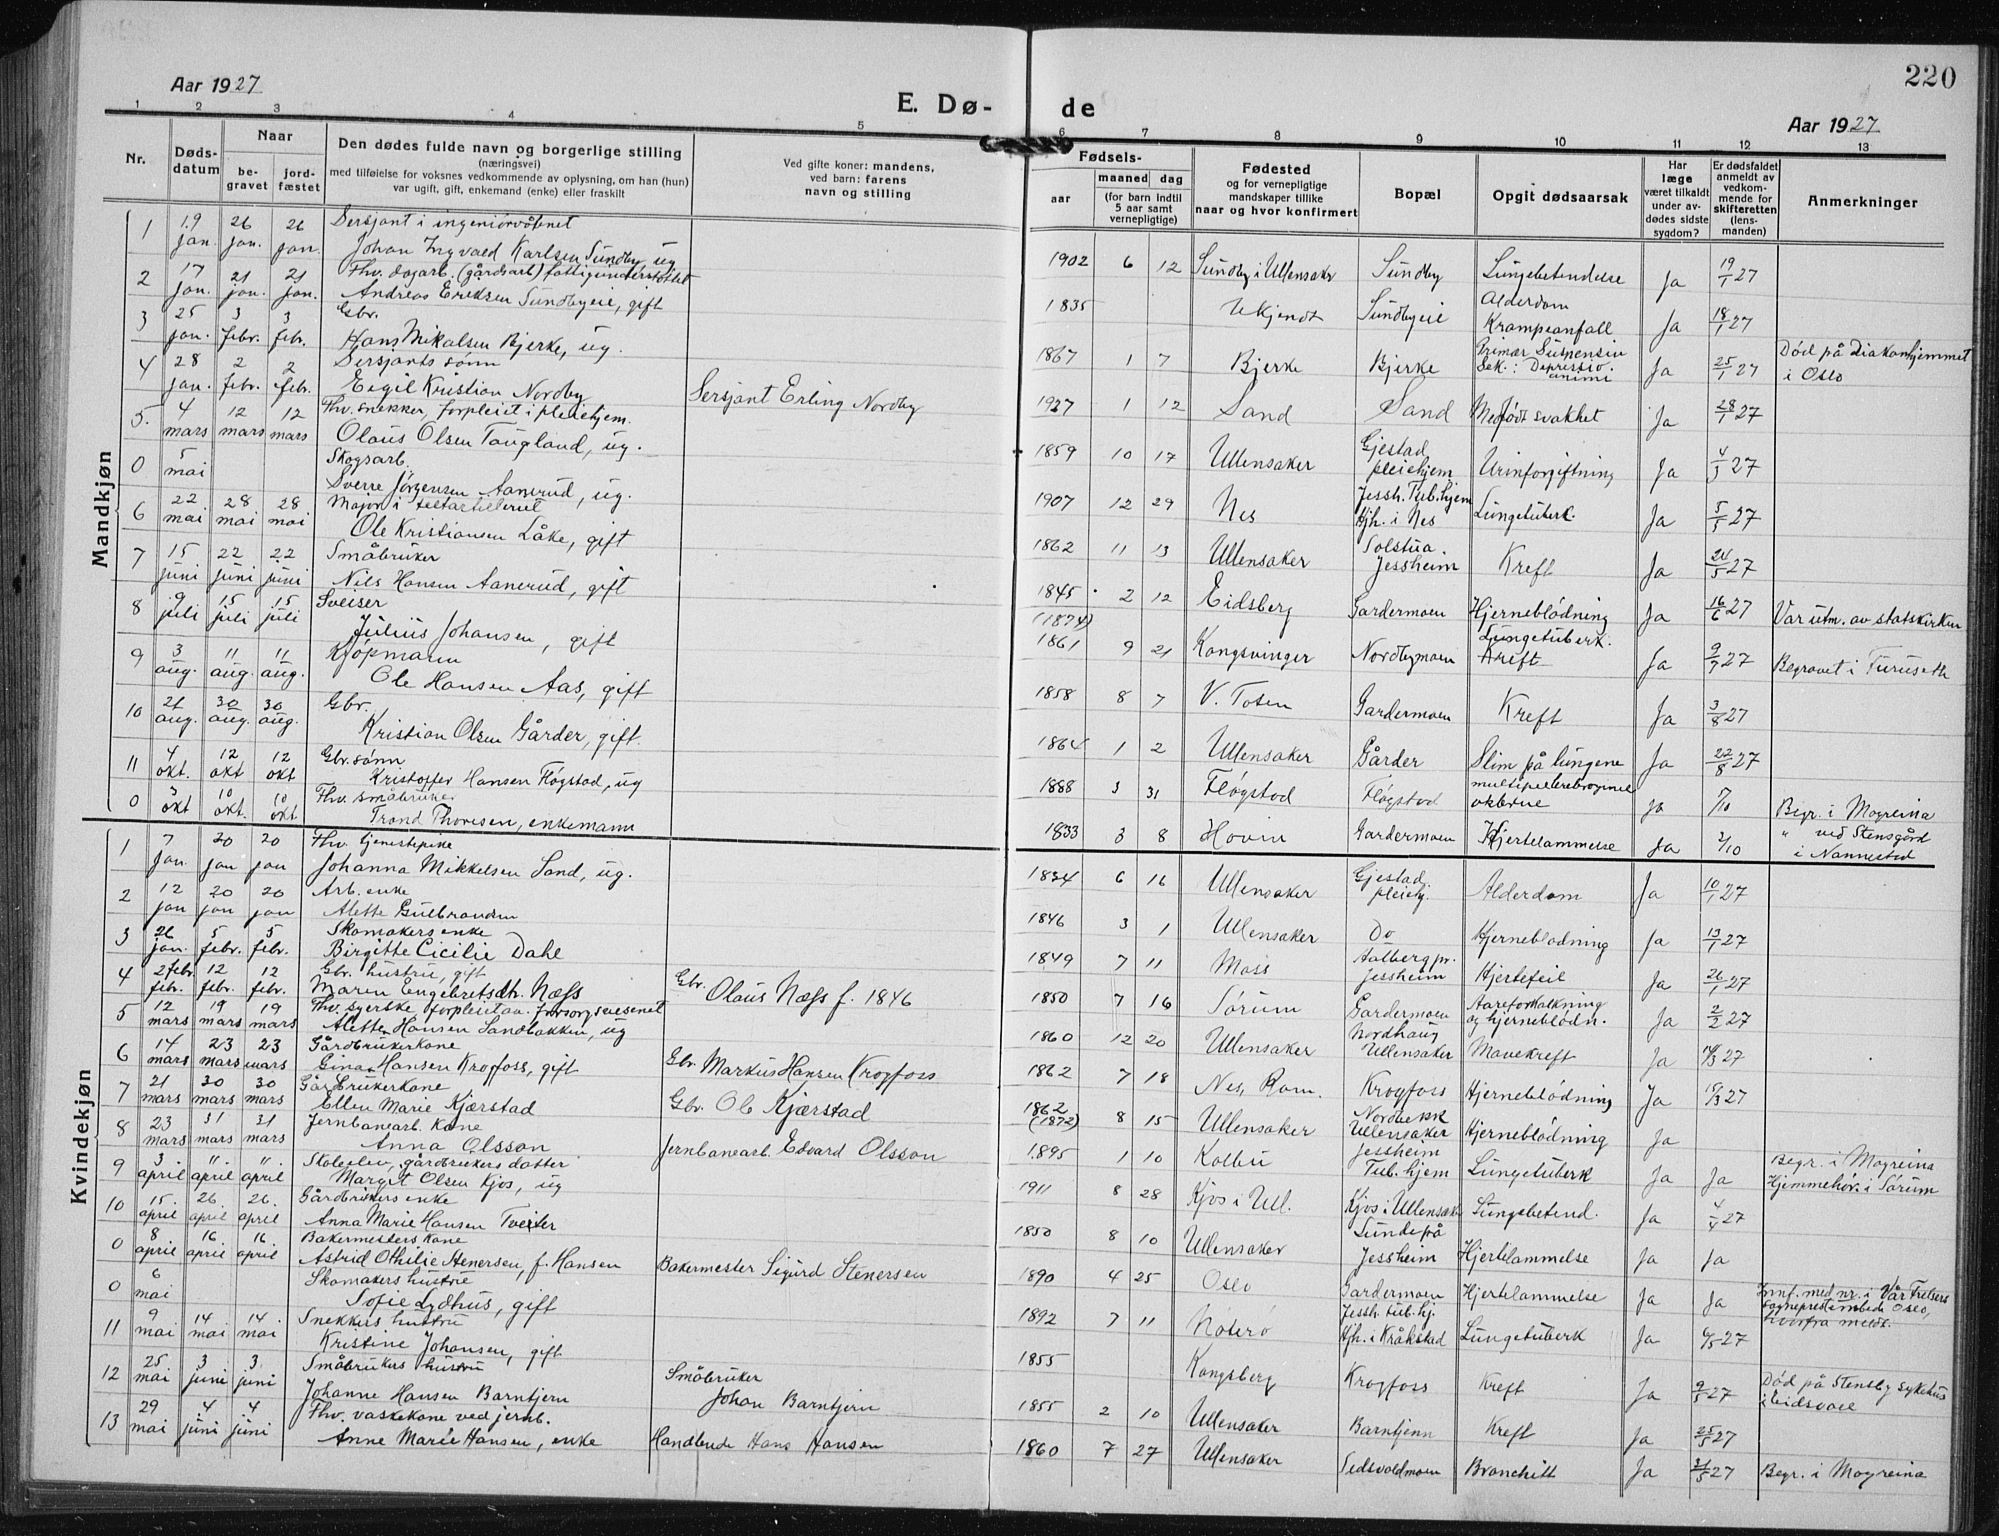 220
Aar 1927
E. Dø-
de
Aar 1927
1 2 3 4 5 6 7 8 9 10 11 12 13
Nr.
Døds-
datum
Naar
be-
gravet
jord-
fæstet
Den dødes fulde navn og borgerlige stilling
(næringsvei)
med tilføielse for voksnes vedkommende av oplysning, om han (hun)
var ugift, gift, enkemand (enke) eller fraskilt
Ved gifte koner: mandens,
ved barn: farens
navn og stilling
Fødsels-
aar
maaned dag
(for barn indtil
5 aar samt
vernepligtige)
Fødested
og for vernepligtige
mandskaper tillike
naar og hvor konfirmert
Bopæl
Opgit dødsaarsak
Har
læge
været tilkaldt
under av-
dødes sidste
sygdom?
Er dødsfaldet
anmeldt av
vedkom-
mende for
skifteretten
(lens-
manden)
Anmerkninger
Mandkjøn
1 19 jan. 26 jan. 26 jan. Sersjant i ingeniørvåbnet
Johan Ingvald Karlsen Sundby, ug 1902 6 12 Sundby i Ullensaker Sundby Lungebetendelse Ja 19/1 27
2 17 jan. 21 jan. 21 jan. Fhv. dagarb. (gårdsarb) fattigunderstøttet
Andreas Eriksen Sundbyeie, gift 1835 Ukjendt Sundbyeie Alderdom Krampeanfall Ja 18/1 27
3 25 jan. 3 febr. 3 febr. Gbr.
Hans Nikolsen Bjerke, ug. 1867 1 7 Bjerke Bjerke Primær Suspensio Sek.: Depressio animi Ja 25/1 27 Død på Diakonhjemmet i Oslo
4 28 jan. 2 febr. 2 febr. Sersjants sønn
Eigil Kristian Nordby Sersjant Erling Nordby 1927 1 12 Sand Sand Medfødt svakhet Ja 28/1 27
5. 4 mars 12 mars 12 mars Fhv. snekker, forpleiet i pleiehjem.
Olaus Olsen Taugland, ug. 1859 10 17 Ullensaker Gjestad pleiehjem Urinforgiftning Ja 4/3 27
0 5 mai Skogsarb.
Sverre Jørgensen Aanerud, ug. 1907 12 29 Nes Jessh. Tub.hjem Hjh. i Nes Lungetuberk. Ja 5/5 27
6 22 mai 28 mai 28 mai Major i feltartilleriet
Ole Kristiansen Låke, gift 1862 11 13 Ullensaker Solstua. Jessheim Kreft Ja 24/5 27
7 15 juni 22 juni 22 juni Småbruker
Nils Hansen Aanerud, gift 1845 2 12 Eidsberg Gardermoen Hjerneblødning Ja 16/6 27 Var utm. av statskirken
8 9 juli 15 juli 15 juli Sveiser
Julius Johansen, gift (1874) 1861 9 21 Kongsvinger Nordbymoen Lungetuberk. Kreft Ja 9/7 27 Begravet i Furuseth
9 3 aug. 11 aug. 11 aug. Kjøpmann
Ole Hansen Aas, gift 1858 8 7 V. Toten Gardermoen Kreft Ja 3/8 27
10 21 aug. 30 aug. 30 aug. Gbr.
Kristian Olsen Gårder, gift. 1864 1 2 Ullensaker Gårder Slim på lungene Ja 22/8 27
11 4 okt. 12 okt 12 okt Gbr.sønn
Kristoffer Hansen Fløgstad, ug 1888 3 31 Fløgstad Fløgstad ja 7/10 Begr. i Mogreina
0 3 okt 10 okt. 10 okt Fhv. småbruker
Trond Thoresen, enkemann 1833 3 8 Hovin Gardermoen Hjertelammelse Ja 3/10 " ved Stensgård i Nannestad
Kvindekjøn
1 7 Jan. 20 jan 20 jan Fhv. tjenestepike
Johanna Mikkelsen Sand, ug. 1834 6 16 Ullensaker Gjestad. pleiehj. Alderdom Ja 10/1 27
2 12 jan 20 jan 20 jan Arb. enke
Alette Gulbrandsen 1846 3 1 Ullensaker Do Hjerneblødning Ja 13/1 27
3 26 jan. 5 febr. 5 febr. Skomakers enke
Birgitte Cicilie Dahl 1849 7 11 Moss Aalberg pr. Jessheim Hjertefeil Ja 26/1 27
4 2 febr. febr. 12 febr. 12 febr. Gbr. hustru, gift
Maren Engebretsdtr. Næss Gbr. Olaus Næss f. 1846 1850 7 16 Sørum Gardermoen Aareforkalkning og hjerneblødn. Ja 2/2 27
5 12 mars 19 mars 19 mars Fhv. syerske, forpleiet av forsorgsvesenet
Alette Hansen Sandbakken, ug 1860 12 20 Ullensaker Nordhaug Ullensaker Mavekreft Ja 14/3 27
6 14 mars 23 mars 23 mars Gårdbrukerkone
Gina Hansen Krogfoss, gift Gbr. Markus Hansen Krogfoss 1862 7 18 Nes, Rom. Krogfoss Hjerneblødning Ja 19/3 27
7 21 mars 30 mars 30 mars Gårdbrukerkone
Ellen Marie Kjærstad Gbr. Ole Kjærstad 1862 (1872) 8 15 Ullensaker Nordbekk Ullensaker Hjerneblødning Ja
8 23 mars 31 mars 31 mars Jernbanearb. Kone
Anna Olsson Jernbanearb. Edvard Olsson 1895 1 10 Kolbu Jessheim Tub.hjem Lungetuberk Ja Ja Begr. i Mogreina Hjemmehør. i Sørum
9 3 april 11. april 11. april Skoleelev, gårdbrukers datter
Margit Olsen Kjos, ug 1911 8 28 Kjos i Ull. Kjos i Ullensaker Lungebetend. Ja 4/4 27
10 15. april 26 april 26. april Gårdbrukers enke
Anna Marie Hansen Tveiter 1850 8 10 Ullensaker Sunde på Jessheim Hjertelammelse Ja Ja
0 8 april 16 april 16 april Bakermesters kone
Astrid Othilie Stenersen, f. Hansen Bakermester Sigurd Stenersen 1890 4 25 Oslo Gardermoen Hjertelammelse Ja Ja Innf. med nr. i Vår Frelsers Sogneprestembede Oslo, hvorfra meldt.
0 6 mai Skomakers hustru
Sofie Lydhus, gift 1892 7 11 Nøterø Jessh. tub.hj. Hjh. i Kråkstad Lungetuberk Ja 6/5 27
11 9 mai 14. mai 14. mai Snekkers hustru
Kristine Johansen, gift 1855 Kongsberg Krogfoss Kreft Ja 9/5 27 Død på Stensby sykehus i Eidsvoll
12 25 mai 3 juni 3 juni Småbrukers hustru
Johanne Hansen Barntjern Småbruker Johan Barntjern 1855 2 10 Ullensaker Barntjenn Kreft Ja 25/5 27
13 29 mai 4 juni 4 juni Fhv. vaskekone ved jernb.
Anne Marie Hansen, enke Handlende Hans Hansen 1860 7 27 Ullensaker Bronchitt Ja 31/5 27 Begr. i Mogreina